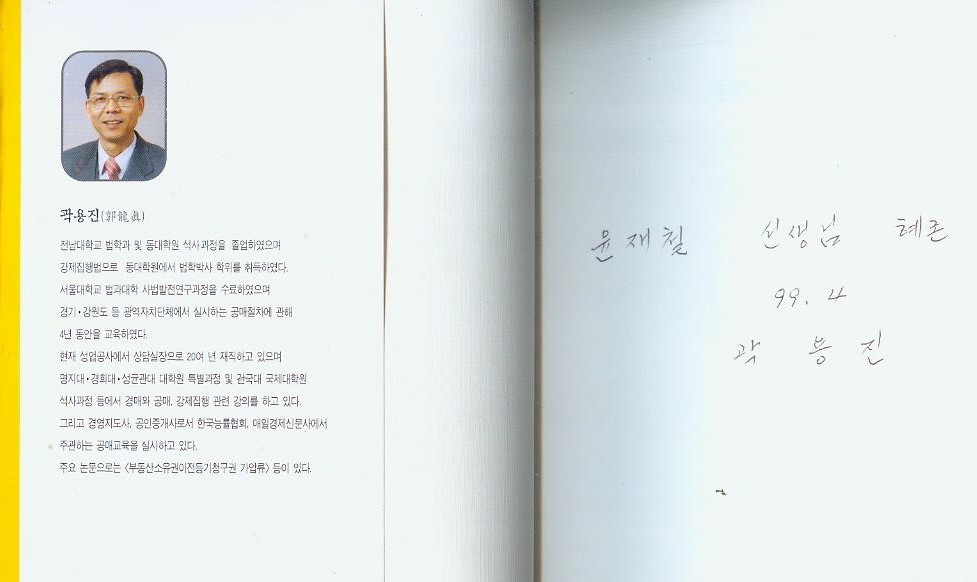 곽용진(郭龍眞)
전남대학교 법학과 및 동대학원 석사과정을 졸업하였으며
강제집행법으로 동대학원에서 법학박사 학위를 취득하였다.
서울대학교 법과대학 사법발전연구과정을 수료하였으며
경기·강원도 등 광역자치단체에서 실시하는 공매절차에 관해
4년 동안을 교육하였다.
현재 성업공사에서 상담실장으로 20여 년 재직하고 있으며
명지대·경희대·성균관대 대학원 특별과정 및 건국대 국제대학원
석사과정 등에서 경매와 공매, 강제집행 관련 강의를 하고 있다.
그리고 경영지도사, 공인중개사로서 한국능률협회, 매일경제신문사에서
주관하는 공매교육을 실시하고 있다.
주요 논문으로는 〈부동산소유권이전등기청구권 가압류〉 등이 있다.
윤재철 선생님 혜존
99. 4
곽용진